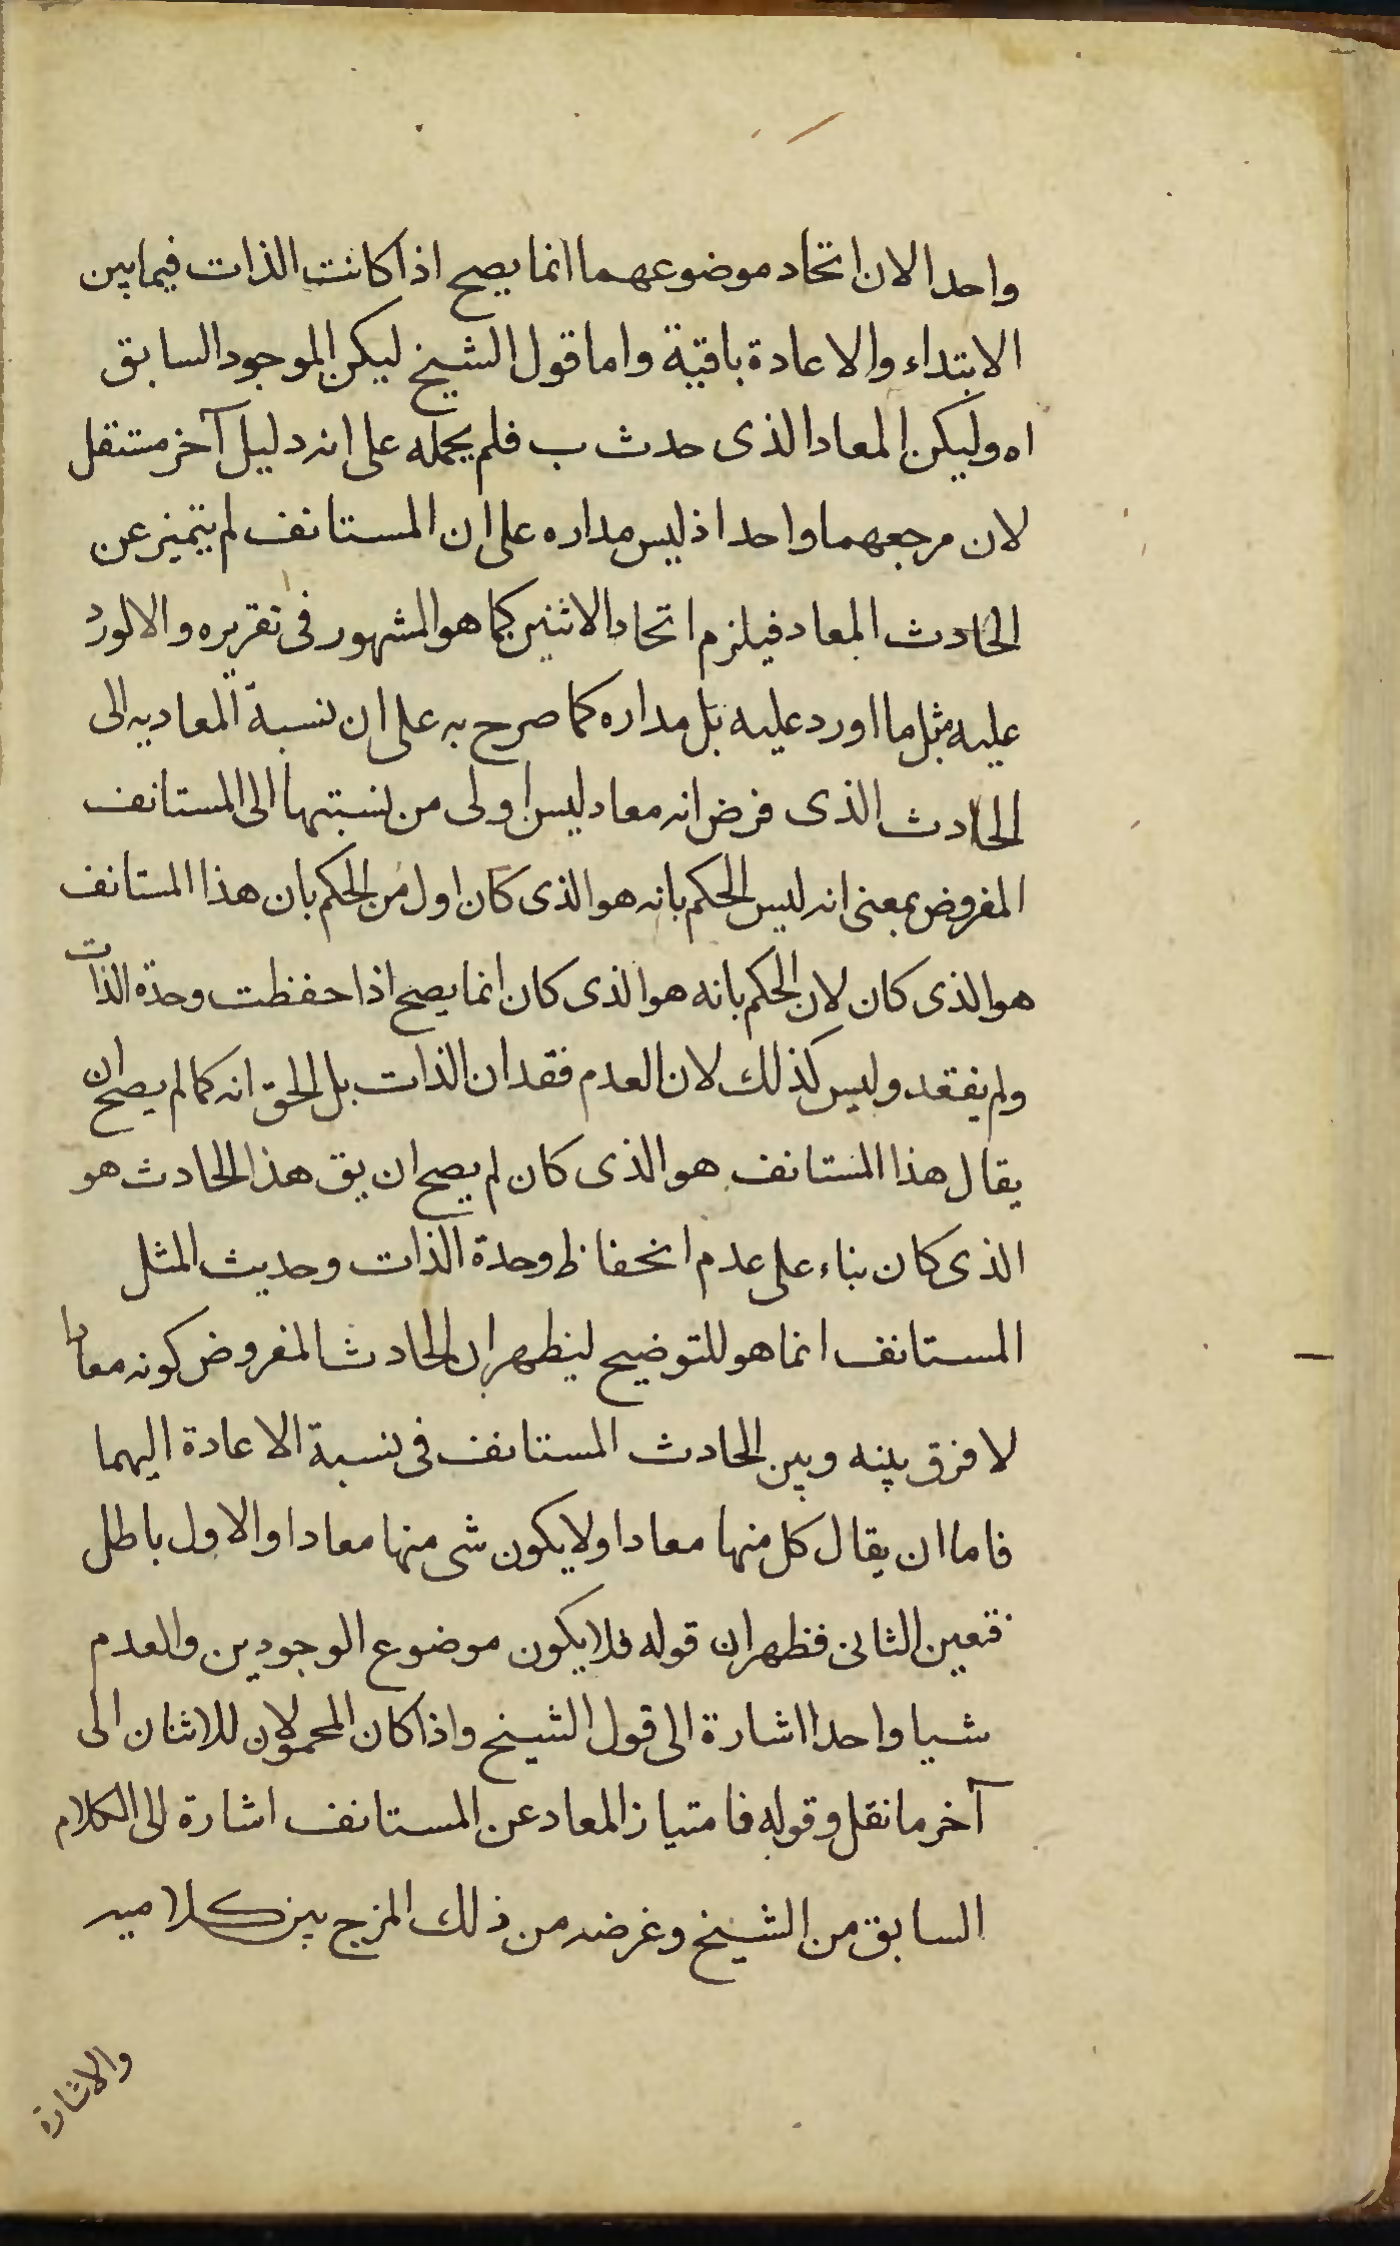 واحدا لان اتحاد موضوعهما انما يصح اذا كانت الذات فيما بين
الابتداء والاعادة باقية واما قول الشيخ ليكن الموجود السابق
اه وليكن المعاد الذى حدث ب فلم يحمله على انه دليل آخر مستقل
لان مرجعهما واحد اذ ليس مداره على ان المستانف لم يتميز عن
الحادث المعاد فيلزم اتحاد الاثنين كما هو المشهور فى تقريره والا لورد
عليه مثل ما اورد عليه بل مداره كما صرح به على ان نسبة المعاديه الى
الحادث الذى فرض انه معاد ليس اولى من نسبتها الى المستانف
المفروض بمعنى انه ليس الحكم بانه هو الذى كان اول من الحكم بان هذا المستانف
هو الذى كان لان الحكم بانه هو الذى كان انما يصح اذا حفظت وحدة الذات
ولم يفقد وليس كذلك لان العدم فقدان الذات بل الحق انه كما لم يصح ان
يقال هذا المستانف هو الذى كان لم يصح ان يق هذا الحادث هو
الذى كان بناء على عدم انحفاظ وحدة الذات وحديث المثل
المستانف انما هو للتوضيح ليظهر ان الحادث المفروض كونه معادا
لا فرق بينه وبين الحادث المستانف فى نسبة الاعادة اليهما
فاما ان يقال كل منها معادا ولا يكون شى منها معادا والاول باطل
فتعين الثانى فظهر ان قوله فلا يكون موضوع الوجودين والعدم
شيا واحدا اشارة الى قول الشيخ واذا كان المحمولان للاثنان الى
آخر ما نقل وقوله فامتياز المعاد عن المستانف اشارة الى الكلام
السابق من الشيخ وغرضه من ذلك المزج بين كلاميه
والاشارة